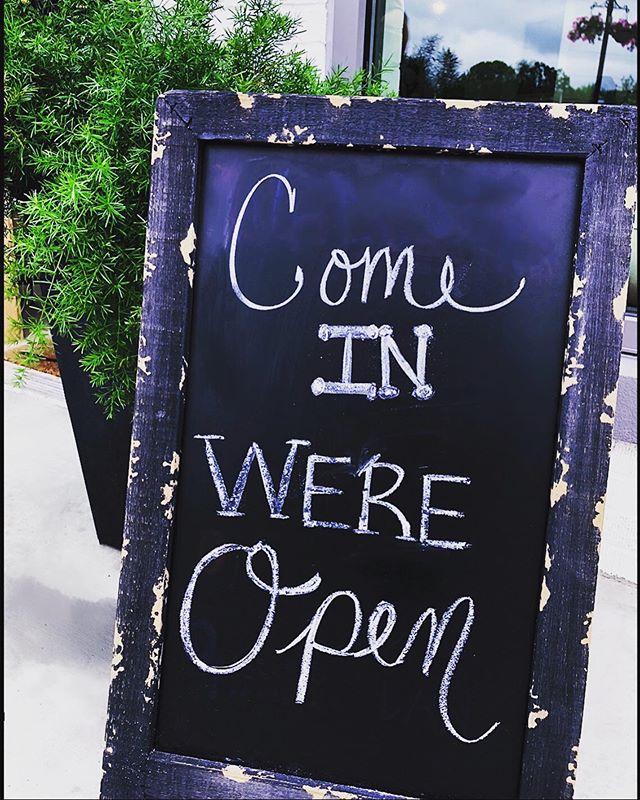 Come
IN
WE'RE
Open